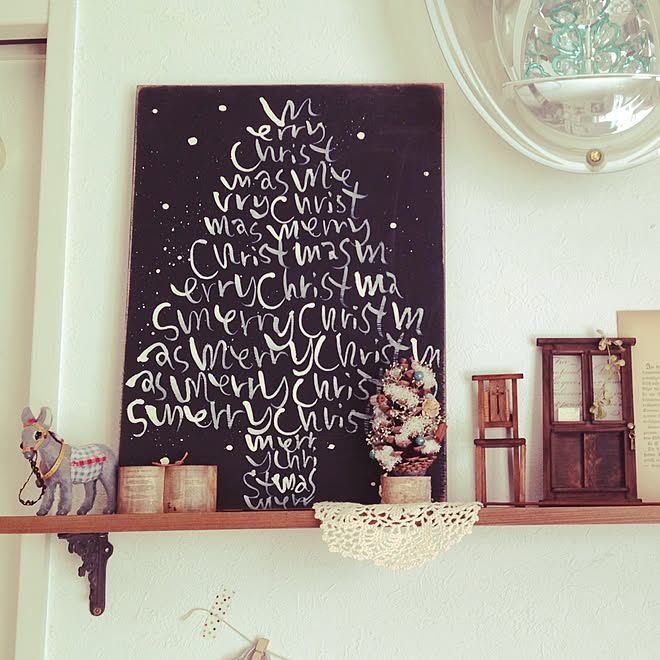 m
erry
Christ
masMe
rryChrist
mas merry
Christmasm
erryChristma
SmerryChristm
asmerryChristm
asmerryChrist
SmerryChrist
merr
yChri
Stmas
merr